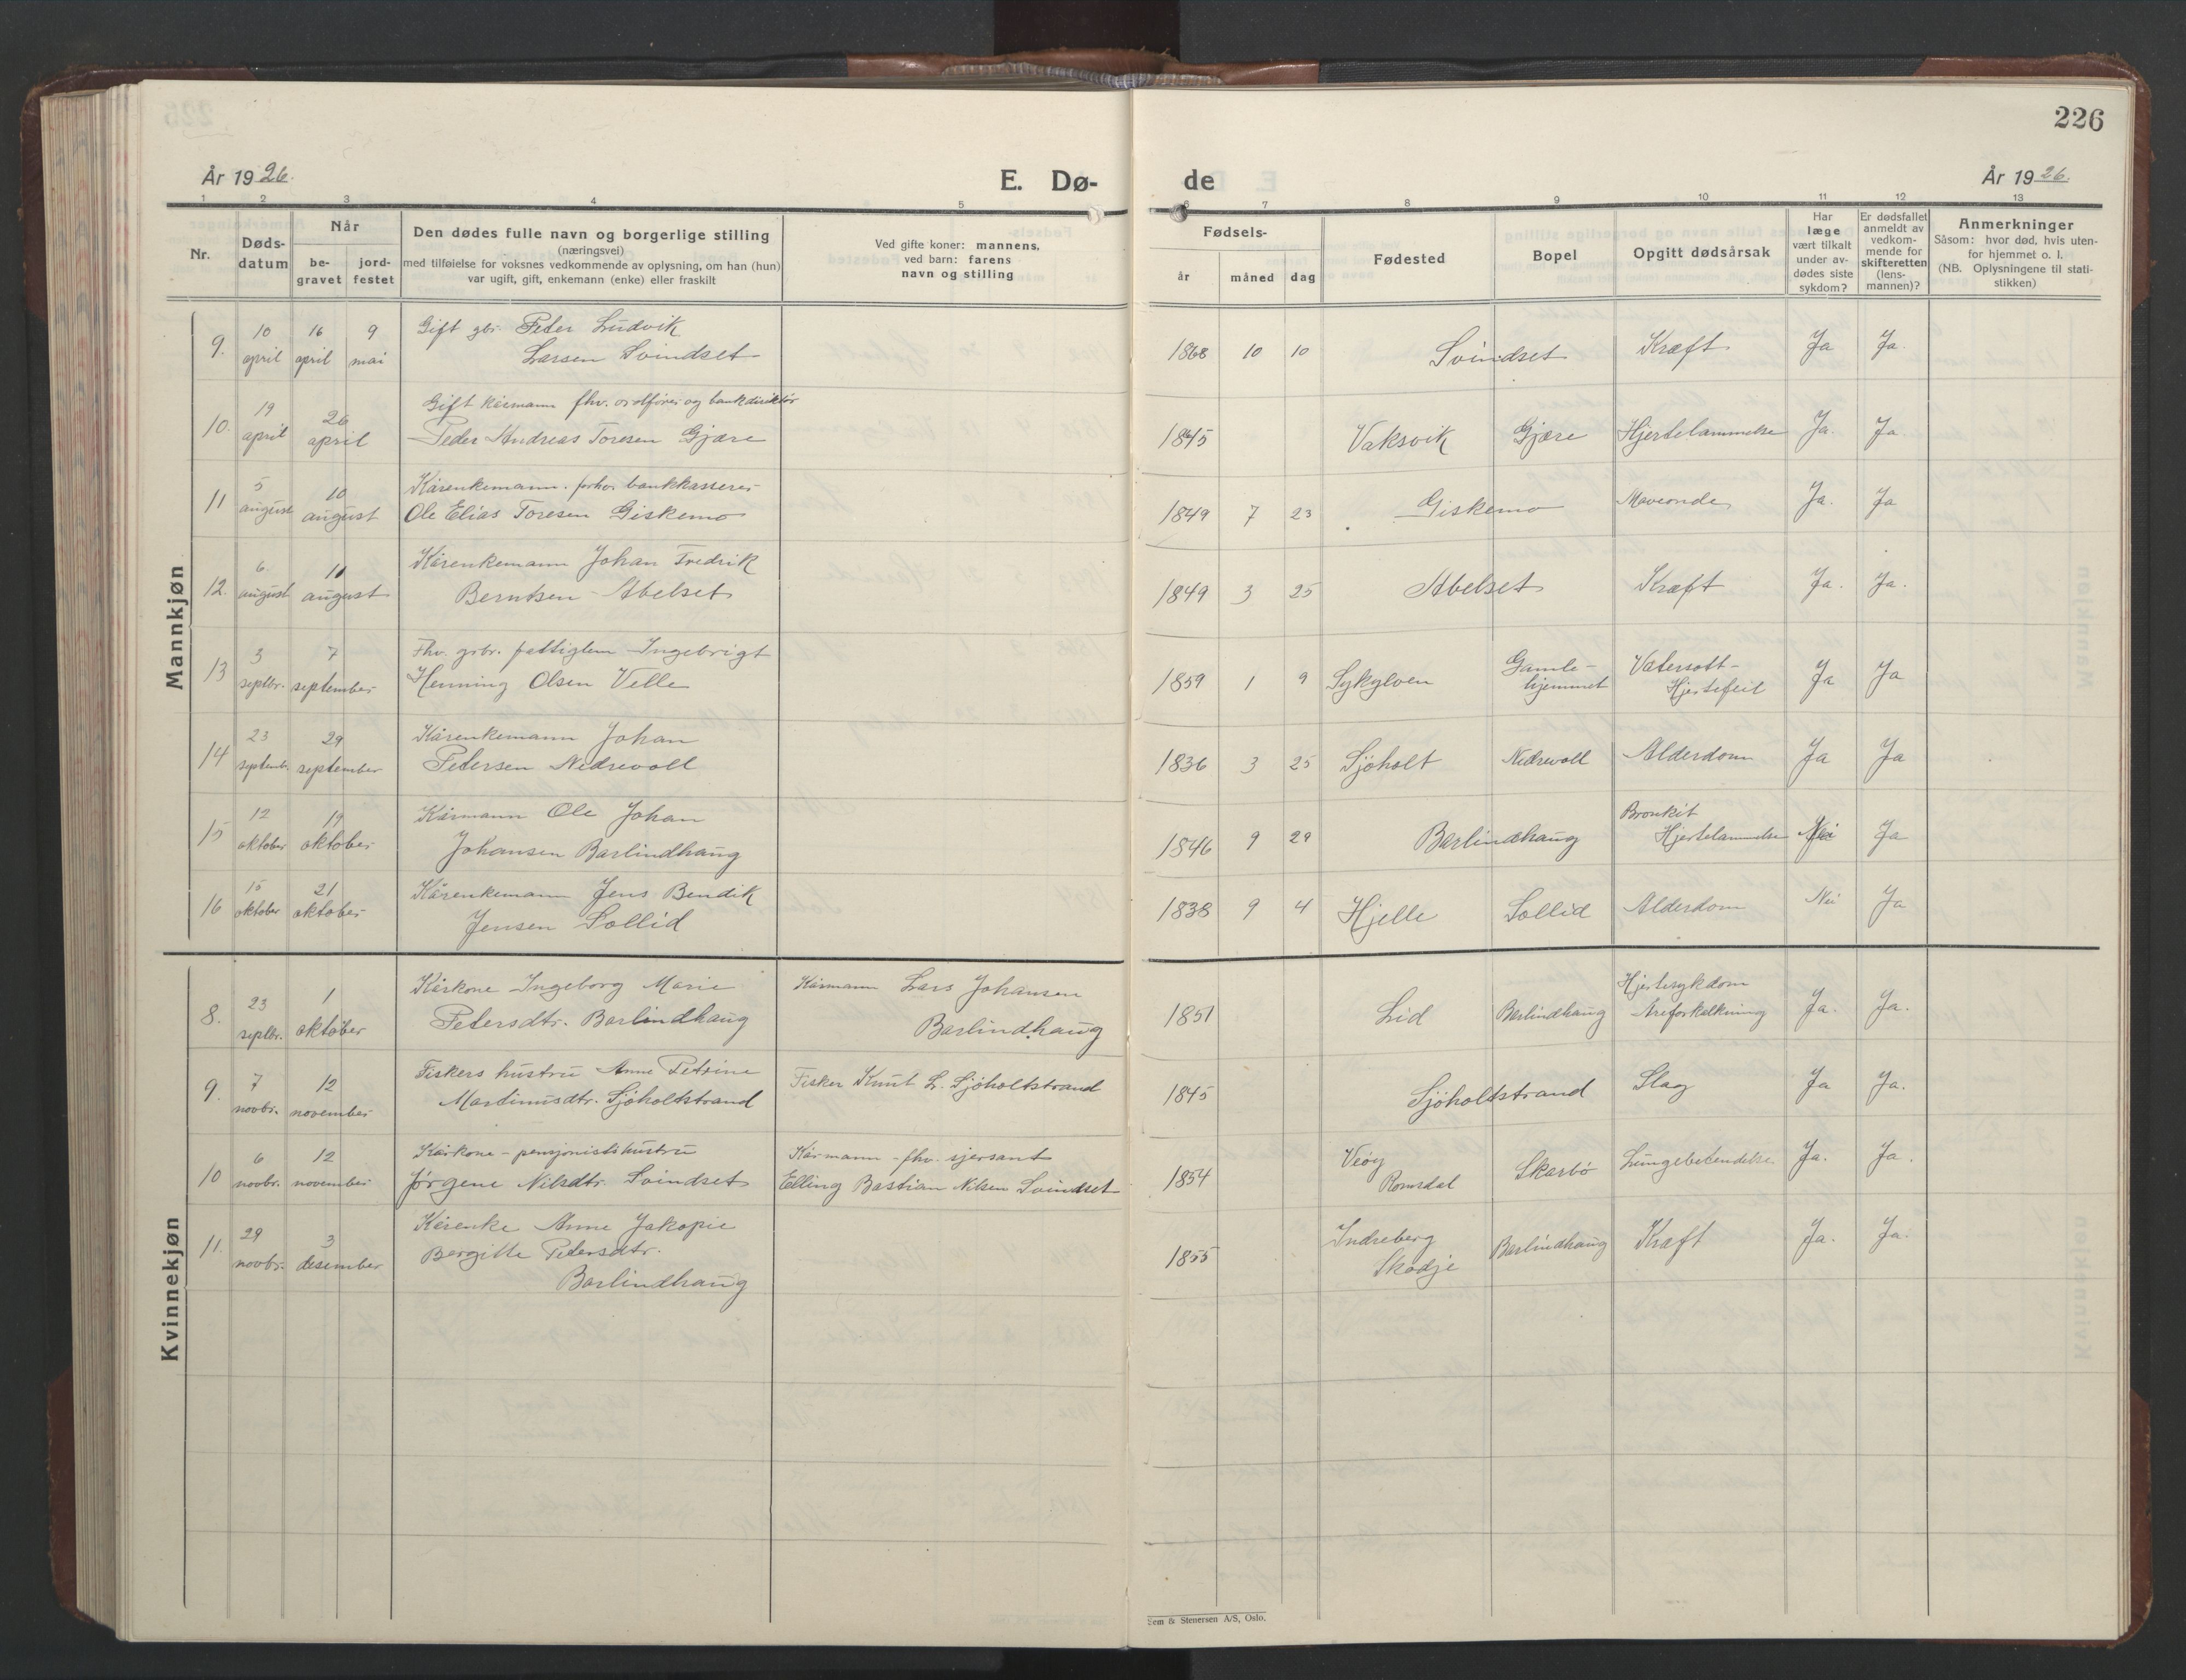 226
År 1926.
E. Dø-
de
År 1926.
1 2 3 4 5 6 7 8 9 10 11 12 13
Nr.
Døds-
datum
Når
be-
gravet
jord-
festet
Den dødes fulle navn og borgerlige stilling
(næringsvei)
med tilføielse for voksnes vedkommende av oplysning, om han (hun)
var ugift, gift, enkemann (enke) eller fraskilt
Ved gifte koner: mannens,
ved barn: farens
navn og stilling
Fødsels-
år
måned
dag
Fødested
Bopel
Opgitt dødsårsak
Har
læge
vært tilkalt
under av-
dødes siste
sykdom?
Er dødsfallet
anmeldt av
vedkom-
mende for
skifteretten
(lens-
mannen)?
Anmerkninger
Såsom: hvor død, hvis uten-
for hjemmet o. l.
(NB. Oplysningene til stati-
stikken)
Mannkjøn
9. 10 april 16 april 9 mai Gift gbr. Peter Ludvik
Larsen Svindset 1868 10 10 Svindset Kræft Ja Ja.
10. 19 april 26 april Gift kårmann fhv. ordfører og bankdirektør
Peder Andreas Toresen Gjære 1845 Vaksvik Gjære Hjertelammelse Ja. Ja
11 5 august 10 august Kårenkemann. forhv. bankkasserer
Ole Elias Toresen Giskemo 1849 7 23 Giskemo Maveonde Ja. Ja
12. 6. august 10 august Kårenkemann Johan Fredrik
Berntsen Abelset 1849 3 25 Abelset Kræft Ja. Ja.
13 3 septbr. 7 september Fhv. grbr. fattiglem Ingebrigt
Henning Olsen Velle 1859 1 9 Sykylven Gamle-
hjemmet Vatersott-
Hjertefeil Ja Ja
14 23 septemb. 29 september Kårenkemann Johan
Petersen Nedrevoll 1836 3 25 Sjøholt Nedrevoll Alderdom Ja Ja
15 12 oktober 19 oktober Kårmann Ole Johan
Johansen Barlindhaug 1846 9 29 Barlindhaug Bronkit
Hjertelammelse Nei Ja
16 15 oktober 21 oktober Kårenkemann Jens Bendik
Jensen Sollid 1838 9 4 Hjelle Sollid Alderdom Nei Ja
Kvinnekjøn
8. 23 septbr. 1 oktober Kårkone Ingeborg Marie
Petersdtr. Barlindhaug Kårmann Lars Johansen
Barlindhaug 1851 Lid Barlindhaug Hjertesykdom
Åreforkalkning Ja. Ja.
9. 7 novbr. 12 november Fiskers hustru Anne Petrine
Martinusdtr. Sjøholtstrand Fisker Knut L. Sjøholtstrand 1845 Sjøholtstrand Slag Ja Ja.
10 6 novbr. 12 november Kårkone - pensjonistshustru
Jørgene Nilsdtr. Svindset Kårmann - fhv. sjersant
Elling Bastian Nilsen Svindset 1854 Veøy
Romsdal Skarbø Lungebetendelse Ja. Ja.
11. 29 novbr. 3 desember Kårenke Anne Jakopie
Bergitte Petersdtr.
Barlindhaug 1855 Indreberg
Skodje Barlindhaug Kræft Ja. Ja.
Sem & Stenersen A/S, Oslo.